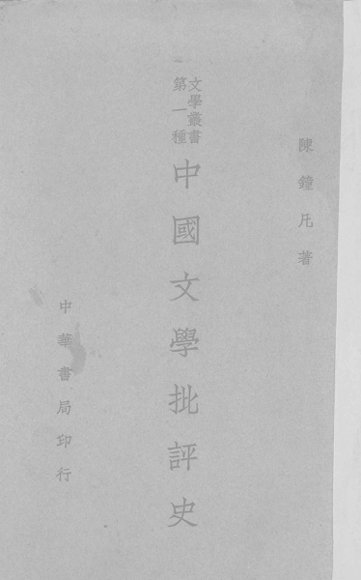 陳鐘凡著
文學叢書
第一種
中國文學批評史
中華書局印行